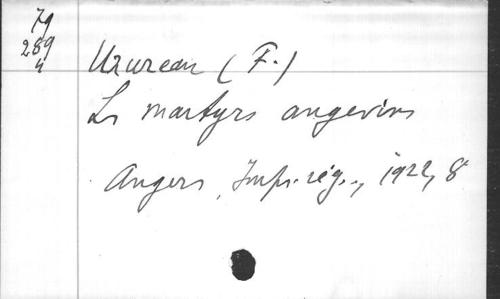 79
289
4
Uzureau (F.)
Les martyrs angevins
Angers, Imp. rég., 1922, 8°